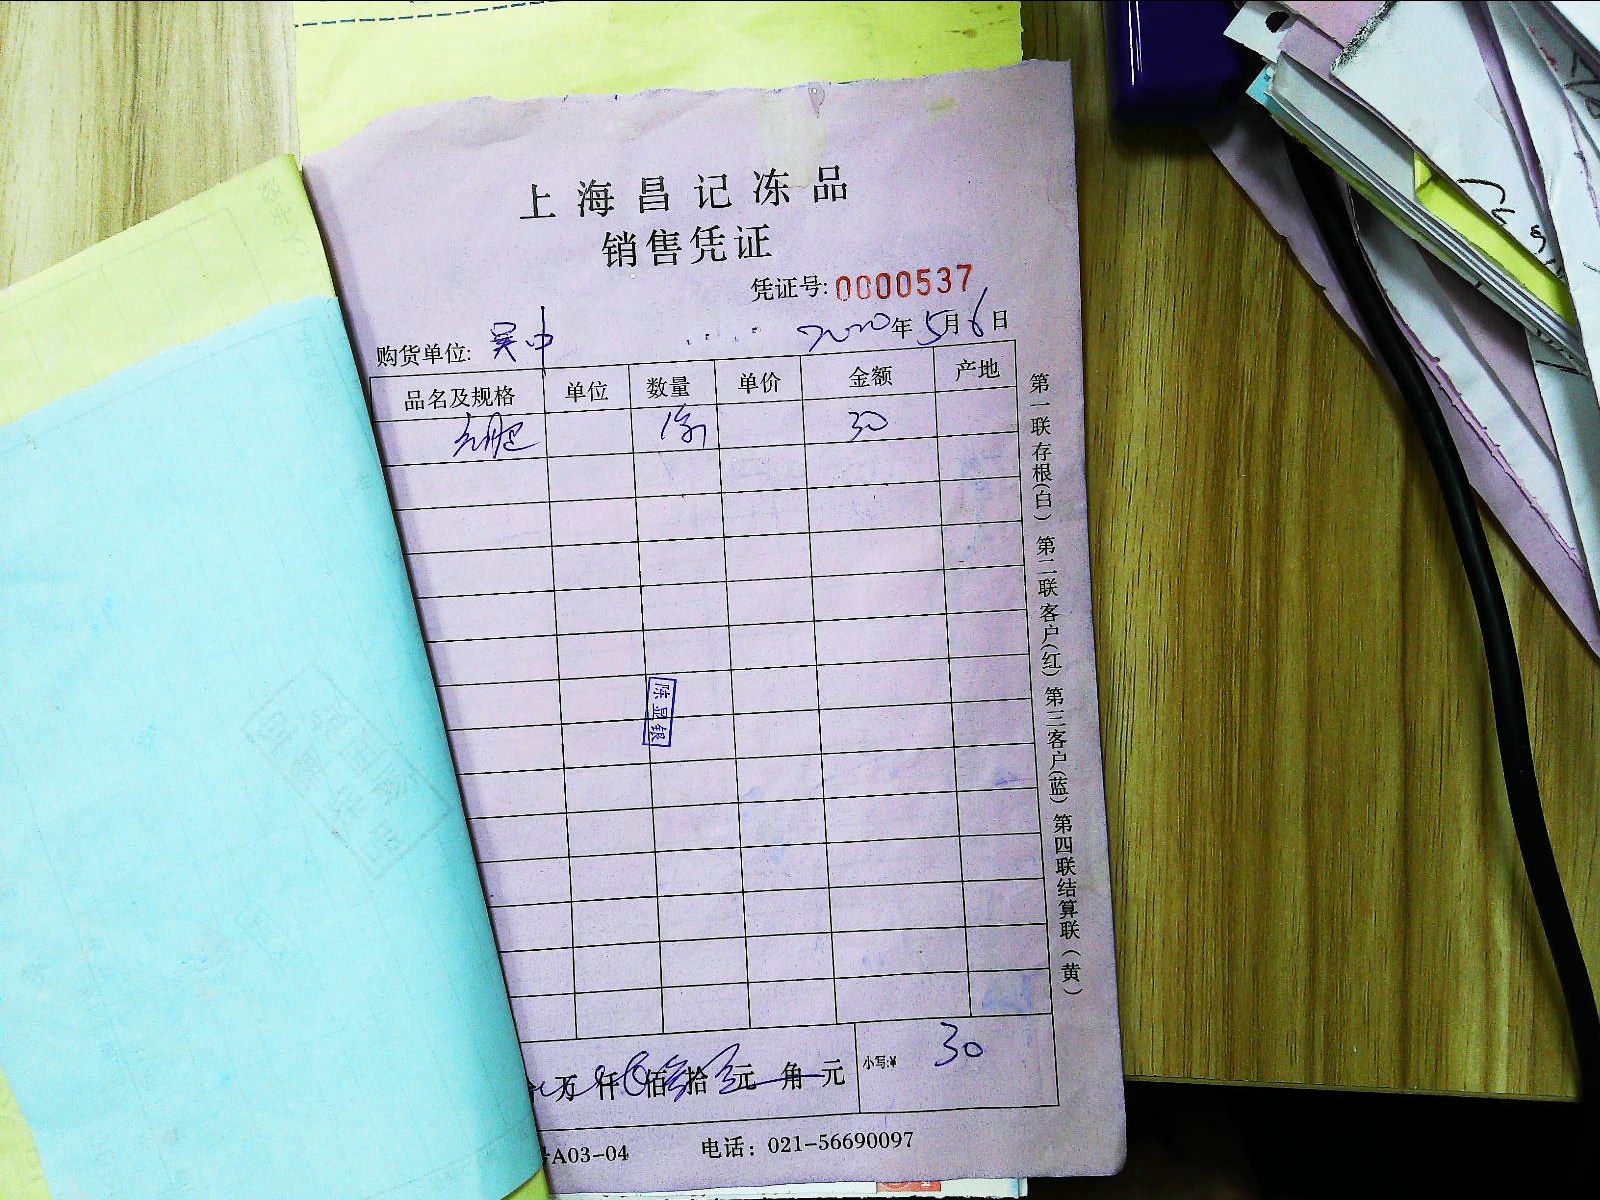 上海昌记冻品
销售凭证
凭证号: 0000537
购货单位: 吴中 2020年5月6日
品名及规格 单位 数量 单价 金额 产地
30
陈显银
万 仟 佰叁拾 元 角 元 小写:¥ 30
号A03-04 电话: 021-56690097
第一联存根(白) 第二联客户(红) 第三客户(蓝) 第四联结算联(黄)